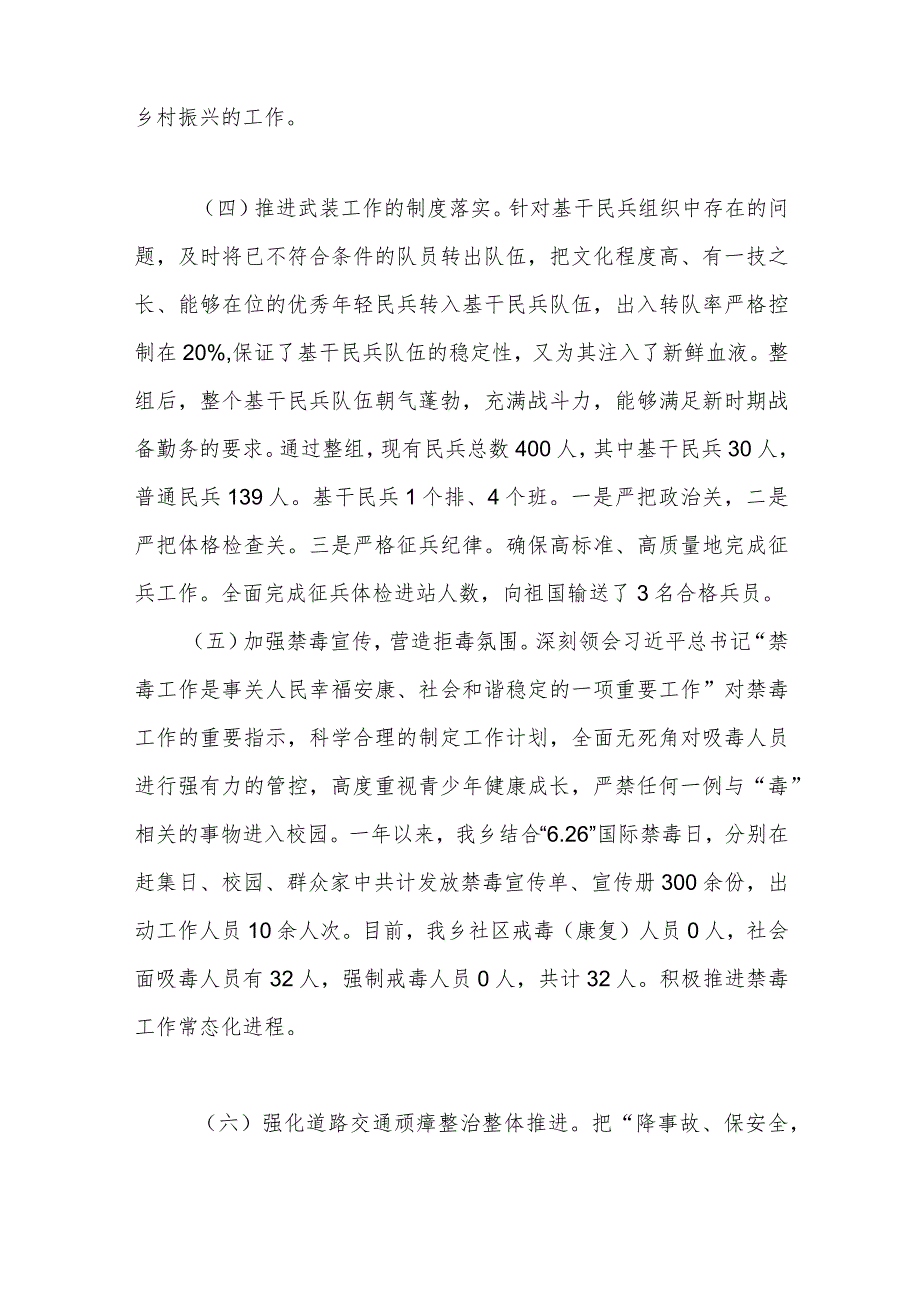 乡村振兴的工作。
（四）推进武装工作的制度落实。针对基干民兵组织中存在的问
题，及时将已不符合条件的队员转出队伍，把文化程度高、有一技之
长、能够在位的优秀年轻民兵转入基干民兵队伍，出入转队率严格控
制在 20%,保证了基干民兵队伍的稳定性，又为其注入了新鲜血液。整
组后，整个基干民兵队伍朝气蓬勃，充满战斗力，能够满足新时期战
备勤务的要求。通过整组，现有民兵总数 400 人，其中基干民兵 30 人，
普通民兵 139 人。基干民兵 1 个排、4 个班。一是严把政治关，二是
严把体格检查关。三是严格征兵纪律。确保高标准、高质量地完成征
兵工作。全面完成征兵体检进站人数，向祖国输送了 3 名合格兵员。
（五）加强禁毒宣传，营造拒毒氛围。深刻领会习近平总书记“禁
毒工作是事关人民幸福安康、社会和谐稳定的一项重要工作”对禁毒
工作的重要指示，科学合理的制定工作计划，全面无死角对吸毒人员
进行强有力的管控，高度重视青少年健康成长，严禁任何一例与“毒”
相关的事物进入校园。一年以来，我乡结合“6.26”国际禁毒日，分别在
赶集日、校园、群众家中共计发放禁毒宣传单、宣传册 300 余份，出
动工作人员 10 余人次。目前，我乡社区戒毒（康复）人员 0 人，社会
面吸毒人员有 32 人，强制戒毒人员 0 人，共计 32 人。积极推进禁毒
工作常态化进程。
（六）强化道路交通顽瘴整治整体推进。把“降事故、保安全，